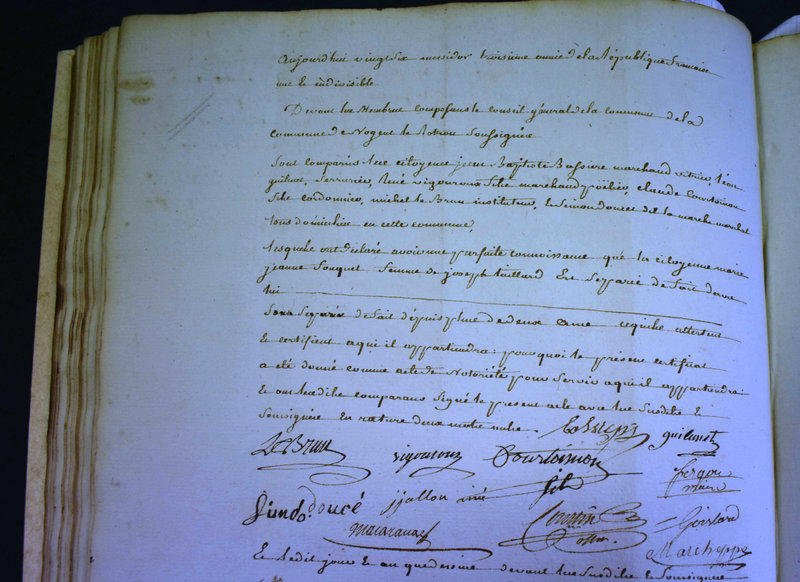 Aujourdhui vingt six messidor troisieme année de la République francaise
une et indivisible
Devant les Membres composant le conseil général de la commune de la
commune de Nogent le Rotrou Soussignés
Sont comparus les citoyens jean Baptiste Bassiere marchand vitrier, léon
guilmot, Serrurier, René vigoureux fils marchand poëlier, claude Courtoimon
fils cordonnier, michel le Brun instituteur, et Simon doucé de la marche marchand
tous domiciliés en cette commune,
lesquels ont déclaré avoir une parfaite connoissance que la citoyenne marie
jeanne fouquet femme de joseph taillard Est Separée de fait davec
lui
Sous Separée de fait depuis plus de deux ans ce quils attestent
et certifient a qui il appartiendra: pourquoi le présent certificat
a été donné comme acte de Notoriété pour Servir a qui il appartiendra
et ont lesdits comparans Signé le present acte avec les susdits et
Soussignés En rature deux mots nuls.
guilmot
LeBrun vigoureux Courtoimon
fils
fergon
maire
Simdo. doucé jjallon ainé
Marcheppe
Et ledit jour et an que dessus devant les Susdits et Soussignés